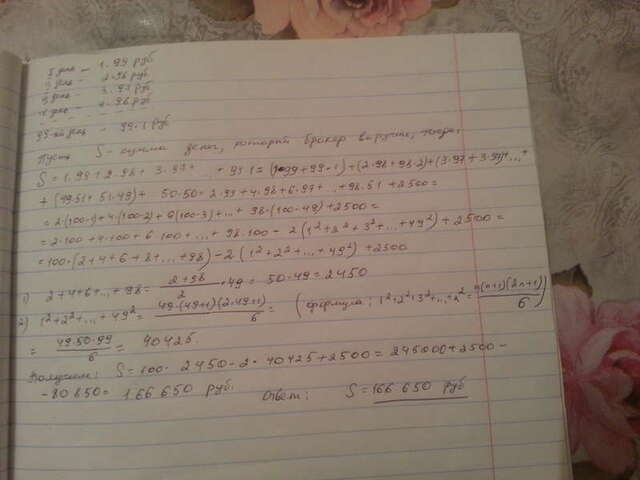 1 день – 1·99 руб
2 день – 2·98 руб
3 день – 3·97 руб
4 день – 4·96 руб
99-ый день – 99·1 руб
Пусть S – сумма денег, который брокер выручит, тогда:
S = 1·99 + 2·98 + 3·97 + ... + 99·1 = (1·99 + 99·1) + (2·98 + 98·2) + (3·97 + 3·97) + ... +
+ (49·51 + 51·49) + 50·50 = 2·99 + 4·98 + 6·97 + ... + 98·51 + 2500 =
= 2·(100-1) + 4·(100-2) + 6(100-3) + ... + 98·(100-49) + 2500 =
= 2·100 + 4·100 + 6·100 + ... + 98·100 - 2(1²+2²+3²+...+49²) + 2500 =
= 100·(2+4+6+8+...+98) - 2(1²+2²+...+49²) + 2500
1) 2+4+6+...+98 = (2+98)/2 · 49 = 50·49 = 2450
2) 1²+2²+...+49² = 49·(49+1)(2·49+1)/6 = (формула: 1²+2²+3²+...+n² = n(n+1)(2n+1)/6)
= 49·50·99/6 = 40425.
Получим: S = 100·2450 - 2·40425 + 2500 = 245000 + 2500 -
- 80850 = 166 650 руб.
Ответ: S = 166 650 руб